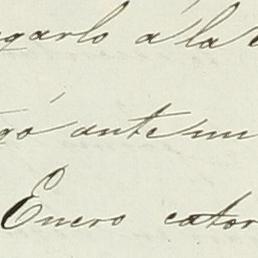 garlo á la
gó ante mi
Enero cator